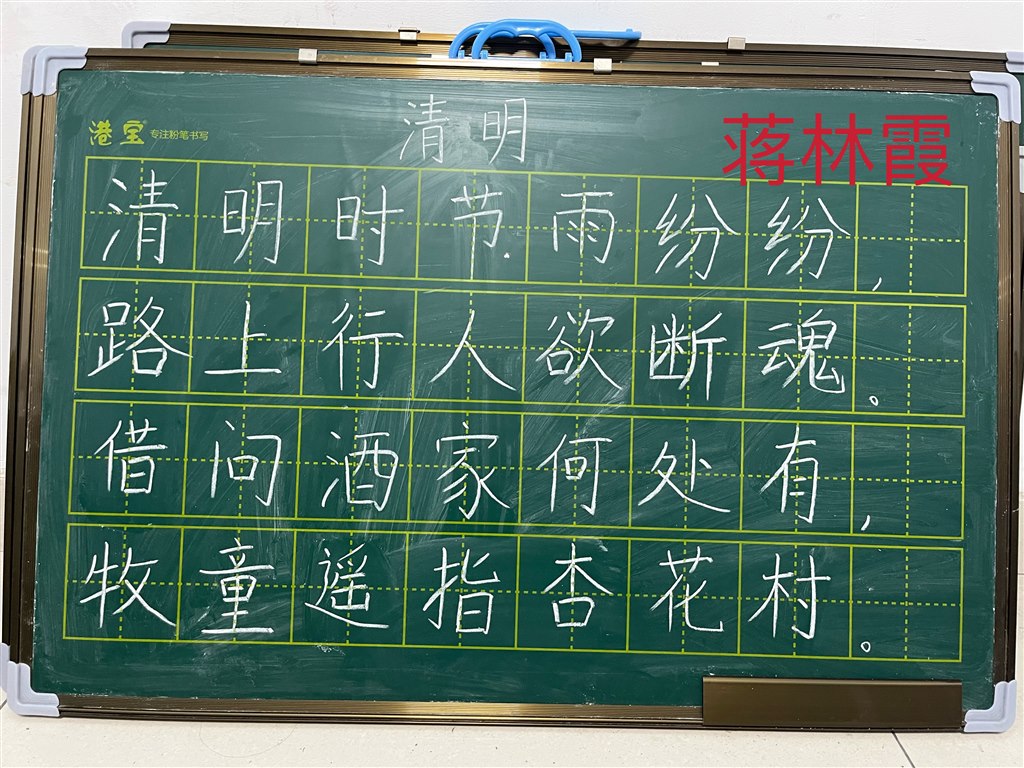 清明
蒋林霞
港宝 专注粉笔书写
清明时节雨纷纷,
路上行人欲断魂。
借问酒家何处有,
牧童遥指杏花村。